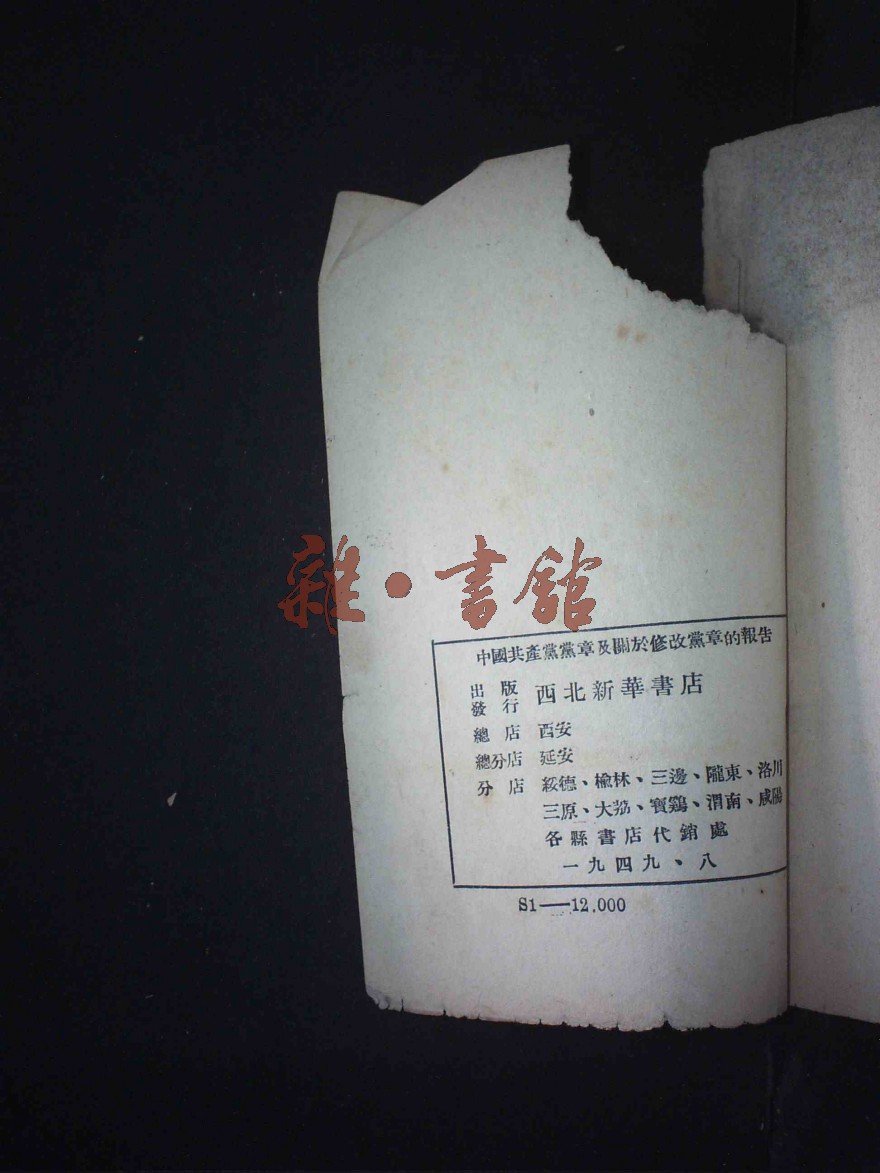 雜·書館
中國共產黨黨章及關於修改黨章的報告
出版
發行 西北新華書店
總店 西安
總分店 延安
分店 綏德、榆林、三邊、隴東、洛川
三原、大荔、寶鷄、渭南、咸陽
各縣書店代銷處
一九四九、八
S1——12,000